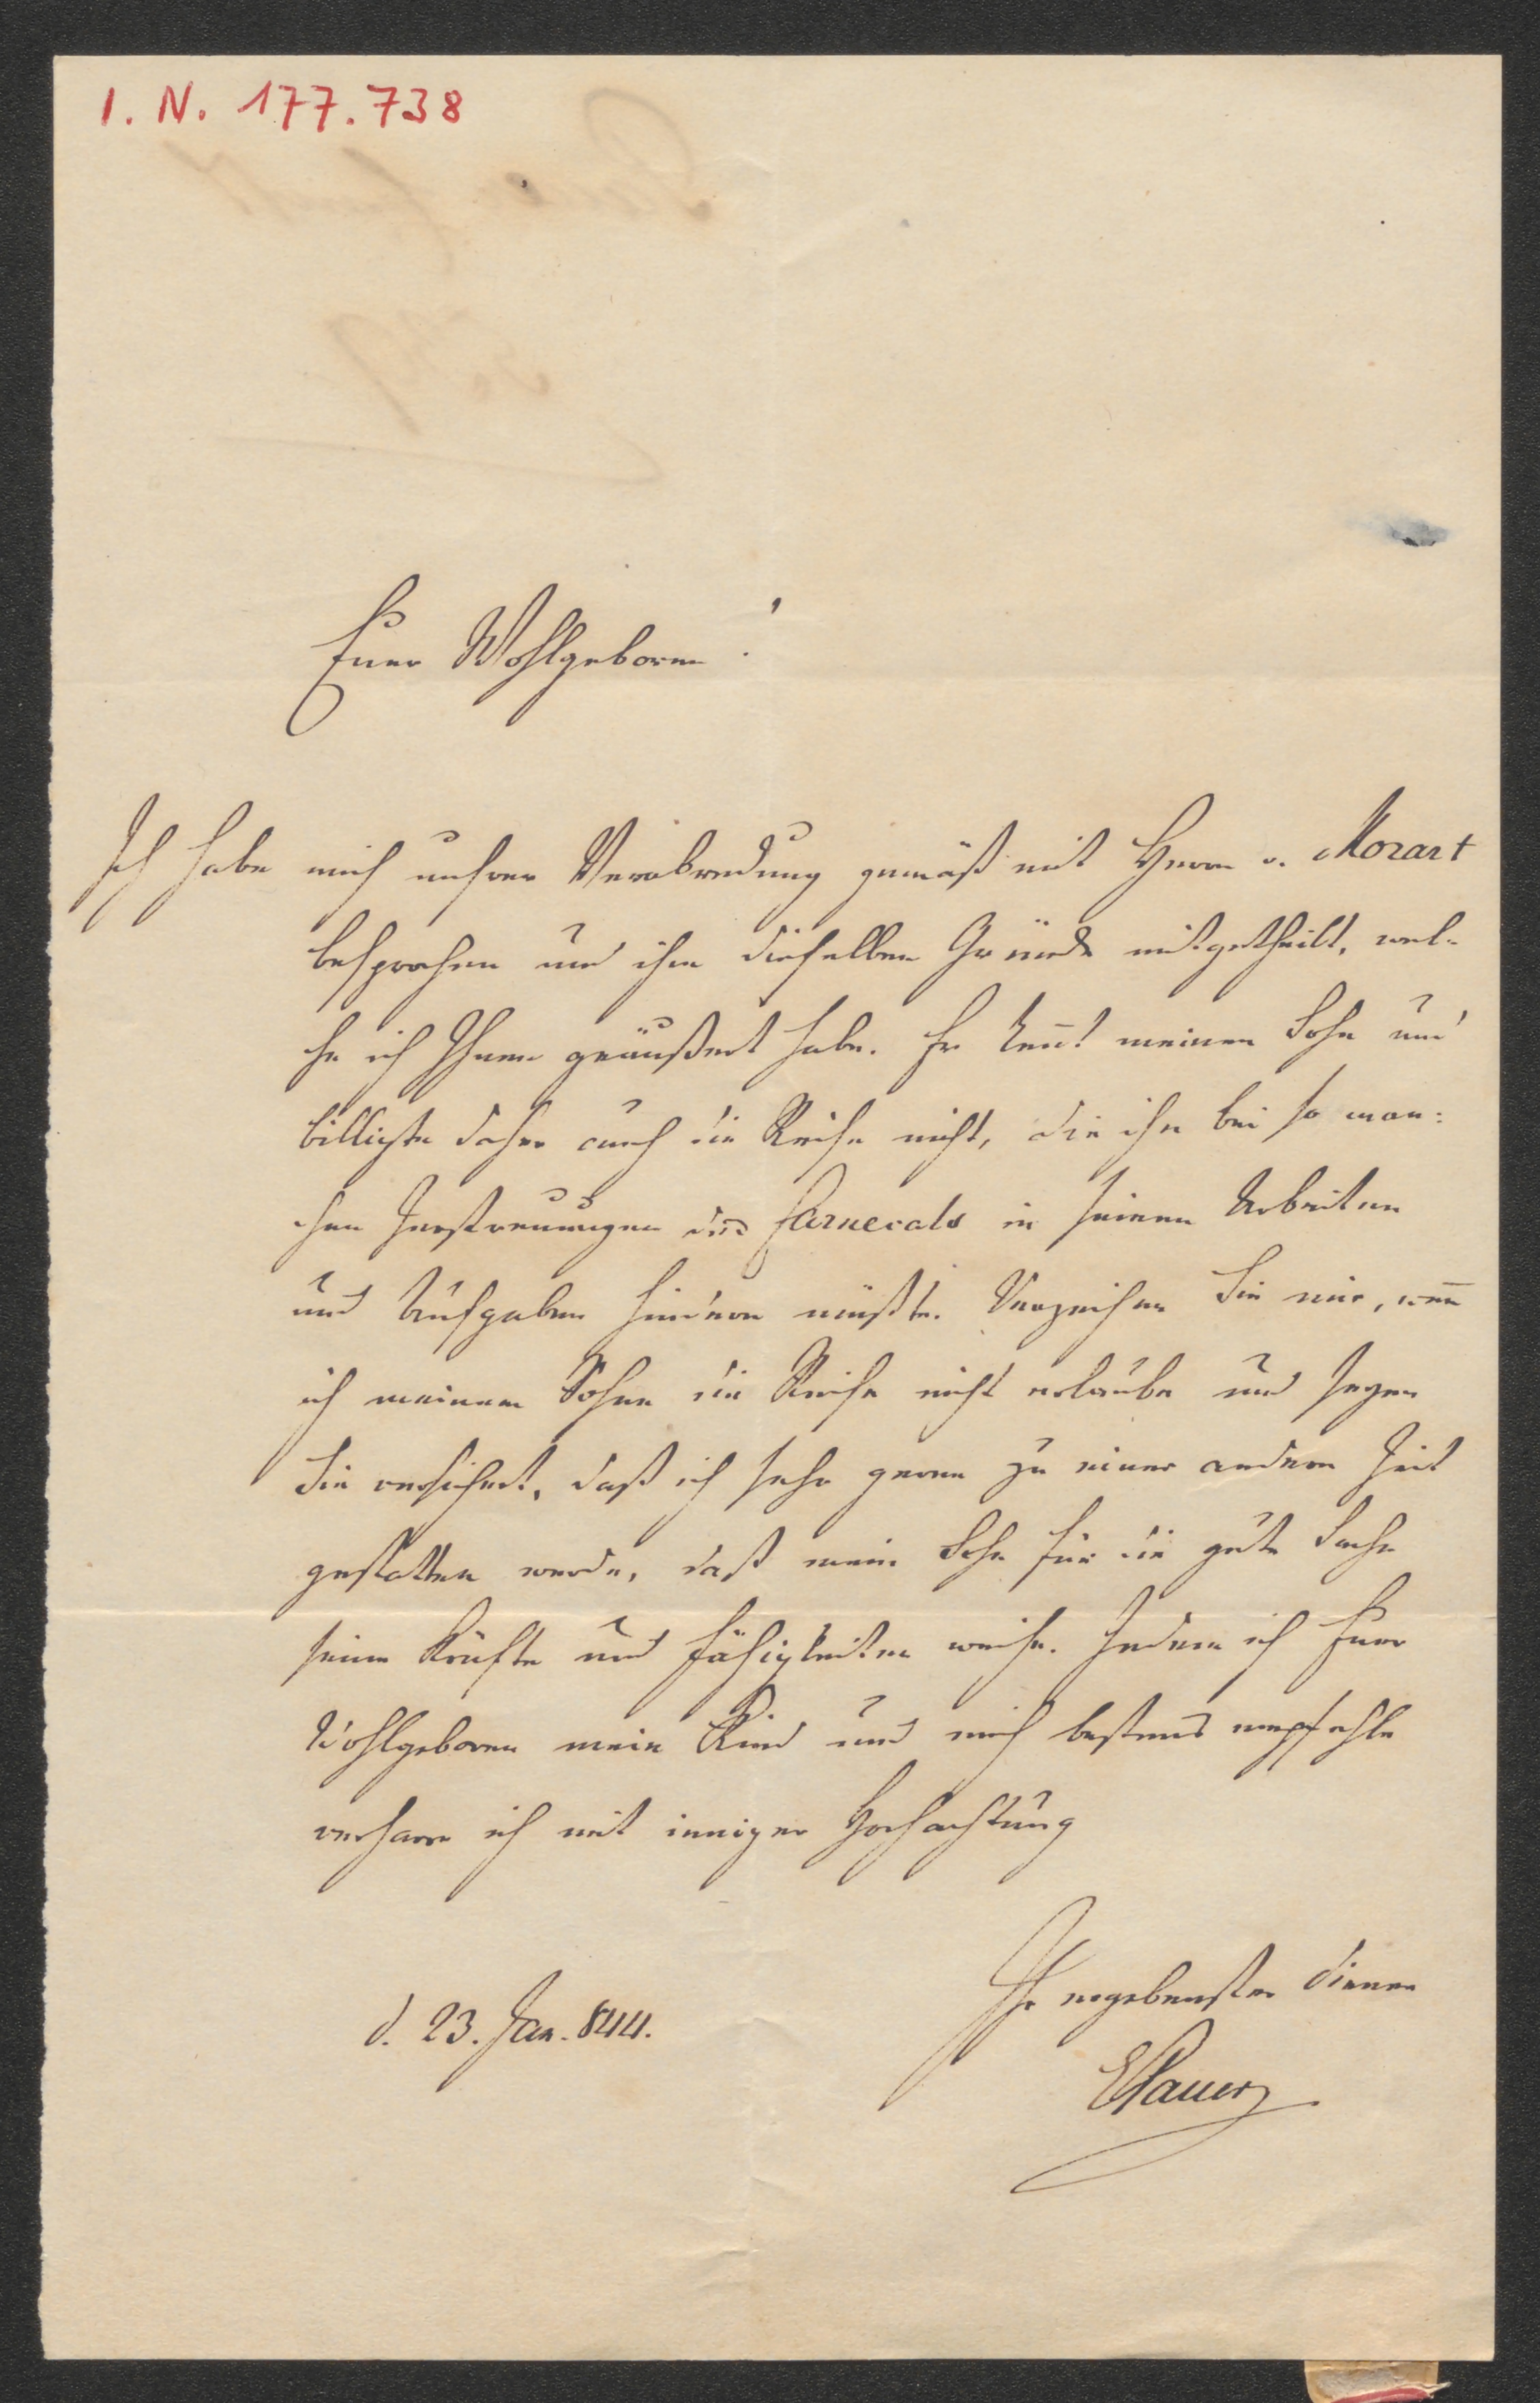 I. N. 177.738
Euer Wohlgeboren!
Ich habe mich unsrer Verabredung gemäß mit Herrn v. Mozart
besprochen und ihm dieselben Gründe mitgetheilt, wel-
che ich Ihnen geäußert habe. Er keñt meinen Sohn und
billigte daher auch die Reise nicht, die ihn bei so man:
chen Zerstreuungen des Carnevals in seinen Arbeiten
und Aufgaben hindern müßte. Verzeihen Sie mir, weñ
ich meinem Sohne die Reise nicht erlaube und seyen
Sie versichert, daß ich sehr gerne zu einer andern Zeit
gestatten werde, daß mein Sohn für die gute Sache
seine Kräfte und Fähigkeiten weihe. Indem ich Euer
Wohlgeboren mein Kind und mich bestens empfehle
verharre ich mit inniger Hochachtung
Ihr ergebenster Diener
d. 23. Jan. 844.
EPauer